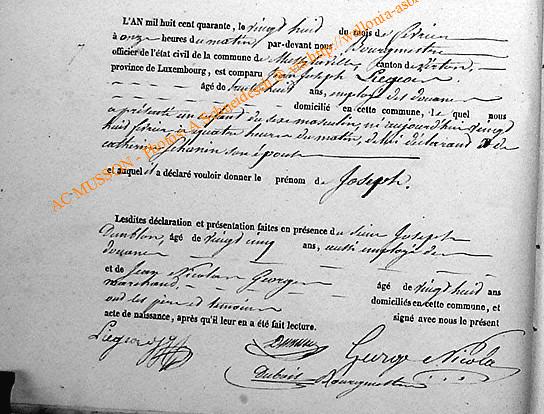 L'AN mil huit cent quarante, le vingt huit du mois de février
à onze heures du matin, par-devant nous Bourgmestre
officier de l'état civil de la commune de canton de Virton,
province de Luxembourg, est comparu Jean Joseph
âgé de huit ans, employé des douanes
domicilié en cette commune, le quel nous
a présenté un enfant du sexe masculin, né aujourd'hui vingt
huit février à quatre heures du matin, de lui déclarant et de
catherine son épouse
et auquel il a déclaré vouloir donner le prénom de Joseph.
Lesdites déclaration et présentation faites en présence du sieur Joseph
âgé de vingt cinq ans, aussi employé de
douane
et de Jean Nicolas George âgé de vingt huit ans
marchand domiciliés en cette commune, et
ont les père et témoins signé avec nous le présent
acte de naissance, après qu'il leur en a été fait lecture.
George Nicola
Dubois Bourgmestre
AC-MUSSON - Photos A.Schneiders